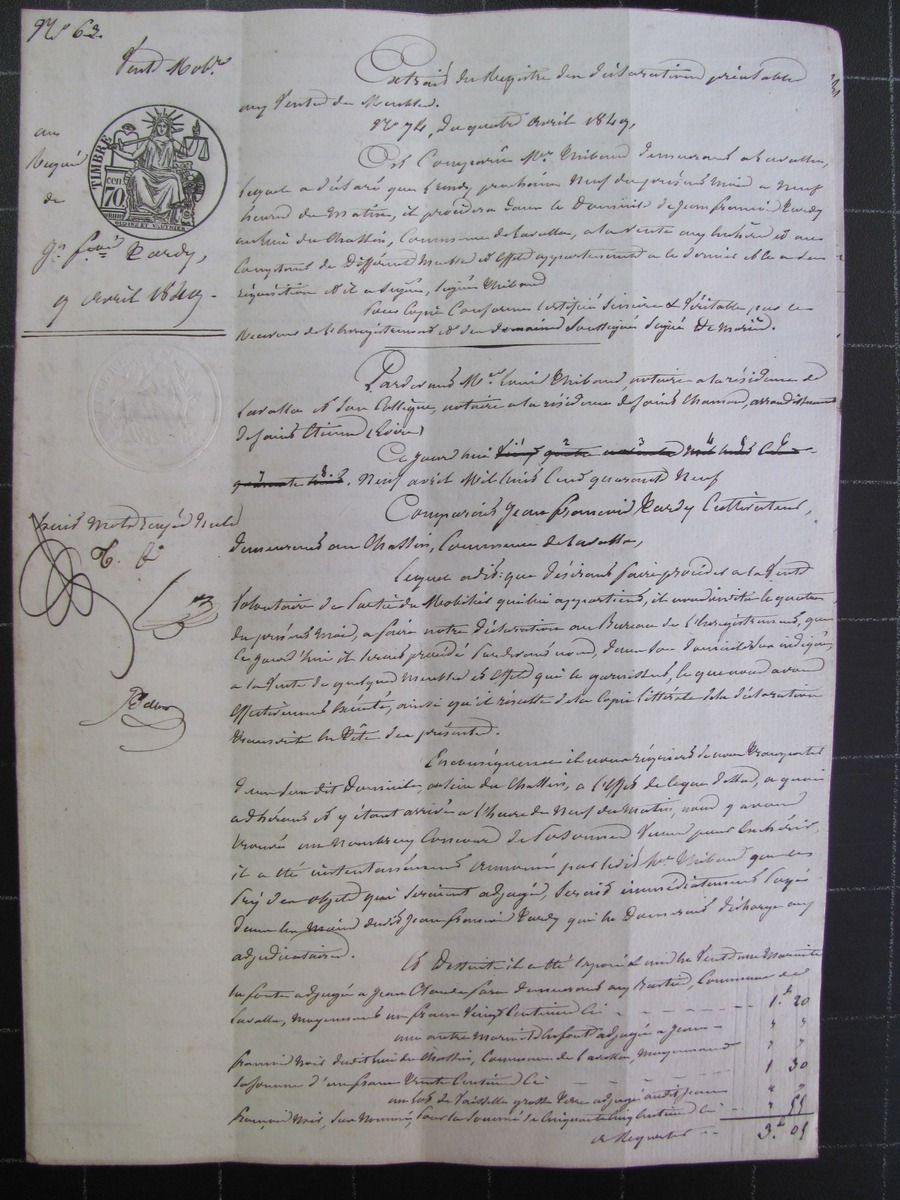 N° 62.
Vente Mobre
au
Requis
de
Jn fcois Pardy,
9 avril 1849.
TIMBRE
cen.
70
Extrait du Registre des déclarations préalables
aux Ventes de Meubles.
N° 74, du quatre avril 1849,
Est Comparu Me Thibaud demeurant a Lavalla,
lequel a déclaré que Lundy prochain Neuf du présent mois a Neuf
heures du Matin, il procédera dans le Domicile de Jean francois Pardy
au lieu du Chassin, Commune de Lavalla, a la vente aux enchères et au
Comptant de Différents Meubles et Effets appartenant a ce dernier et le a sa
réquisition et il a signé, signé Thibaud
Pour Copie Conforme Certifiée Sincère & Véritable, par le
Receveur de l'Enregistrement et des domaines Soussigné signé De
Pardevant Me Louis Thibaud, notaire a la résidence de
Lavalla et son Collègue, notaire a la résidence de Saint Chamond, arrondissement
de Saint Etienne (Loire)
Ce jourd'hui
Neuf avril Mil huit Cent quarante Neuf
Comparait Jean francois Pardy Cultivateur,
demeurant au Chassin, Commune de Lavalla,
Lequel a dit: que désirant faire procéder a la Vente
Volontaire de partie du Mobilier qui lui appartient, il nous invita le quatre
du présent mois, a faire notre déclaration au Bureau de l'Enregistrement, que
Ce jourd'hui il serait procédé pardevant nous, dans son domicile sus indiqué,
a la Vente de quelques meubles et effets qui le garnissent, ce que nous avons
effectivement exécuté, ainsi qu'il résulte de la Copie littérale de la déclaration
transcrite en tête des présentes.
huit Mots rayés Nuls
En conséquence il nous a requis de nous transporter
dans son dit Domicile, au lieu du Chassin, a l'effet de ce que dessus, a quoi
adhérant et y étant arrivés a l'heure de Neuf du Matin, nous y avons
trouvé un Nombreux Concours de personnes Venues pour Enchérir,
il a été instantanément annoncé par ledit Me Thibaud que les
prix des objets qui seraient adjugés, seraient immédiatement payés
dans les mains dudit Jean francois Pardy qui en donnerait décharge aux
adjudicataires.
Et de suite il a été exposé & mis en Vente une Marmite
en fonte adjugée a Jean Claude demeurant aux Commune de
Lavalla, Moyennant un franc Vingt Centimes Ci - - - - 1.f 20
une autre Marmite en fonte adjugée a Jean " "
francois dudit lieu du Chassin, Commune de Lavalla, moyennant " "
la somme d'un franc trente Centimes Ci - - - - 1 30
un lot de Vaisselle grosse terre adjugé audit Jean " "
francois sus Nommé, pour la somme de Cinquante cinq Centimes Ci - - " 55
a Reporter - - 3.f 05